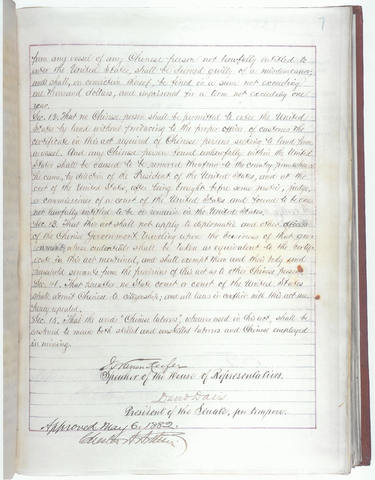 7
from any vessel of any Chinese person not lawfully entitled to
enter the United States, shall be deemed guilty of a misdemeanor,
and shall, on conviction thereof, be fined in a sum not exceeding
one thousand dollars, and imprisoned for a term not exceeding one
year.
Sec. 12. That no Chinese person shall be permitted to enter the United
States by land without producing to the proper officer of customs the
certificate in this act required of Chinese persons seeking to land from
a vessel. And any Chinese person found unlawfully within the United
States shall be caused to be removed therefrom to the country from whence
he came, by direction of the President of the United States, and at the
cost of the United States, after being brought before some justice, judge,
or commissioner of a court of the United States and found to be one
not lawfully entitled to be or remain in the United States.
Sec. 13. That this act shall not apply to diplomatic and other officers
of the Chinese Government traveling upon the business of that gov-
ernment, whose credentials shall be taken as equivalent to the certif-
icate in this act mentioned, and shall exempt them and their body and
household servants from the provisions of this act as to other Chinese persons.
Sec. 14. That hereafter no State court or court of the United States
shall admit Chinese to citizenship; and all laws in conflict with this act are
hereby repealed.
Sec. 15. That the words "Chinese laborers", wherever used in this act, shall be
construed to mean both skilled and unskilled laborers and Chinese employed
in mining.
J. Warren Keifer
Speaker of the House of Representatives.
David Davis
President of the Senate, pro tempore.
Approved May 6, 1882.
Chester A. Arthur